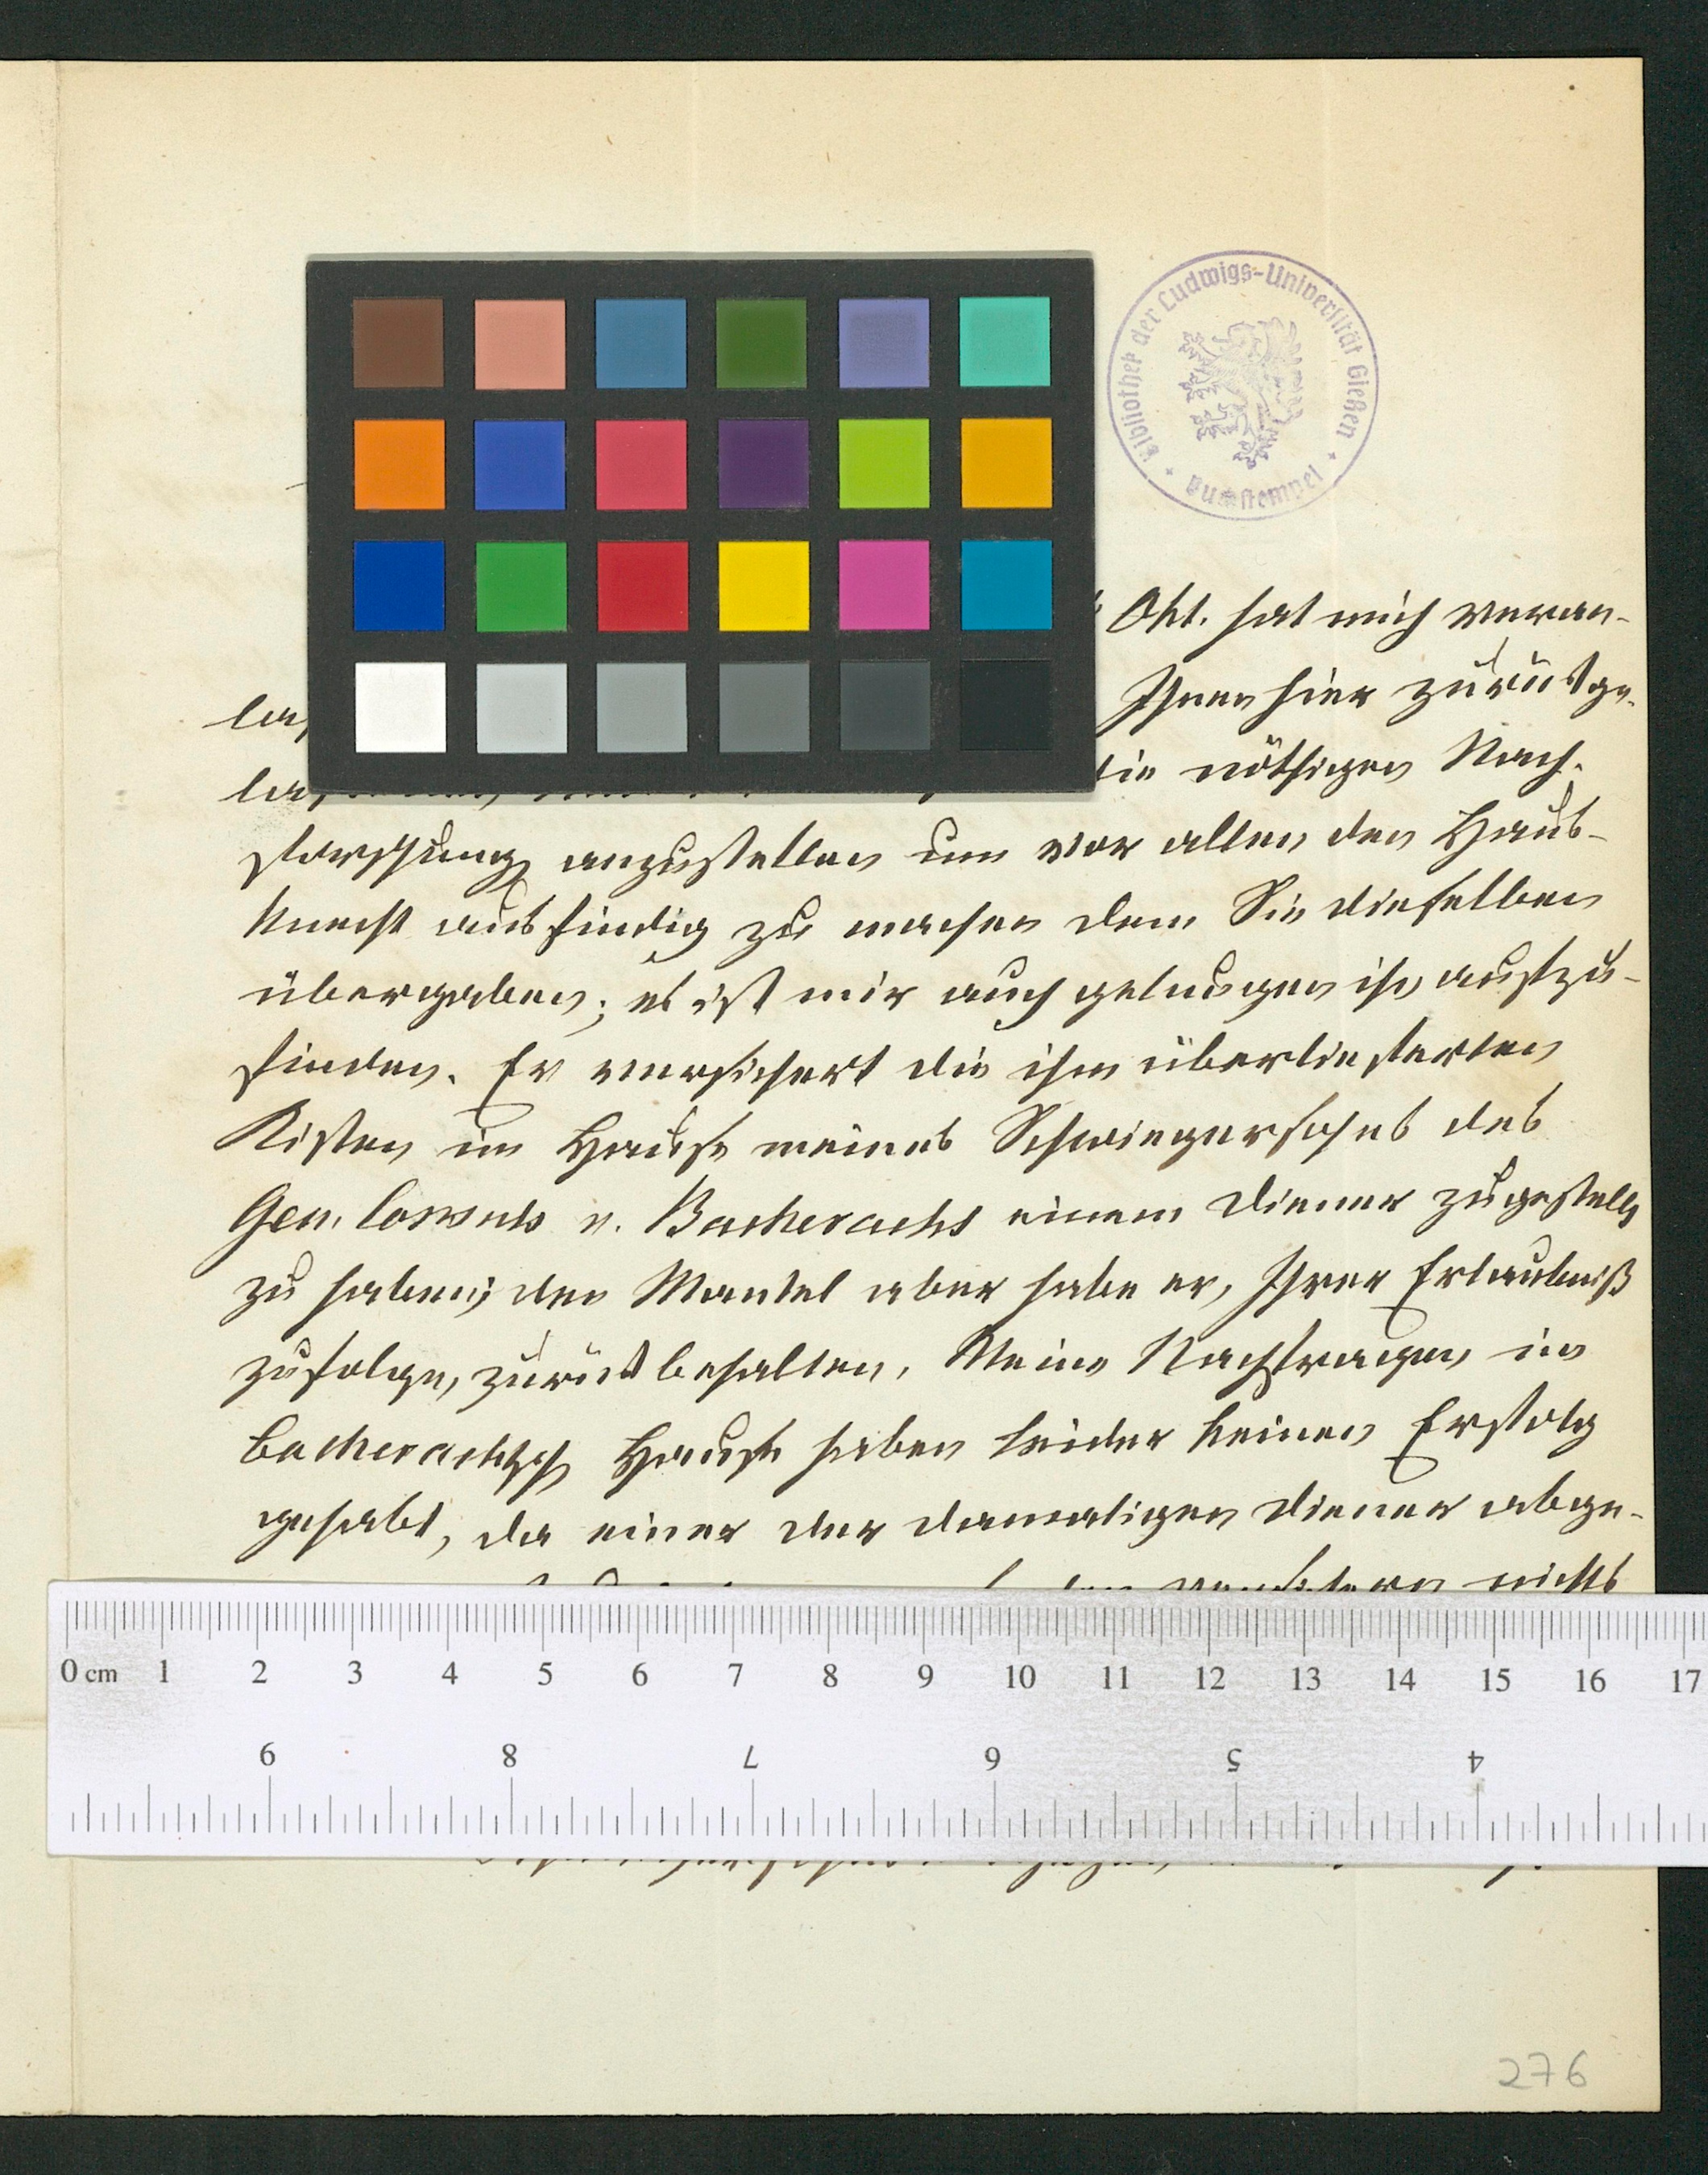 Bibliothek der Ludwigs-Universität Gießen
Okt. hat mich veran-
Ihnen hier zurückge-
die nöthigen Nach-
forschung anzustellen um vor allen den Haus-
knecht ausfindig zu machen dem Sie dieselben
übergaben; es ist mir auch gelungen ihn aufzu-
finden. Er versichert die ihm überlieferten
Kisten im Hause meines Schwiegersohns des
Gen. Consuls v. Bacherachs einem Diener zugestellt
zu haben; den Mantel aber habe er, Ihrer Erlaubniß
zufolge, zurückbehalten. Meine Nachfragen im
Bacherachsch Hause haben leider keinen Erfolg
gehabt, da einer der damaligen Diener abge-
nichts
0 cm 1 2 3 4 5 6 7 8 9 10 11 12 13 14 15 16 17
9 8 7 6 5 4
276